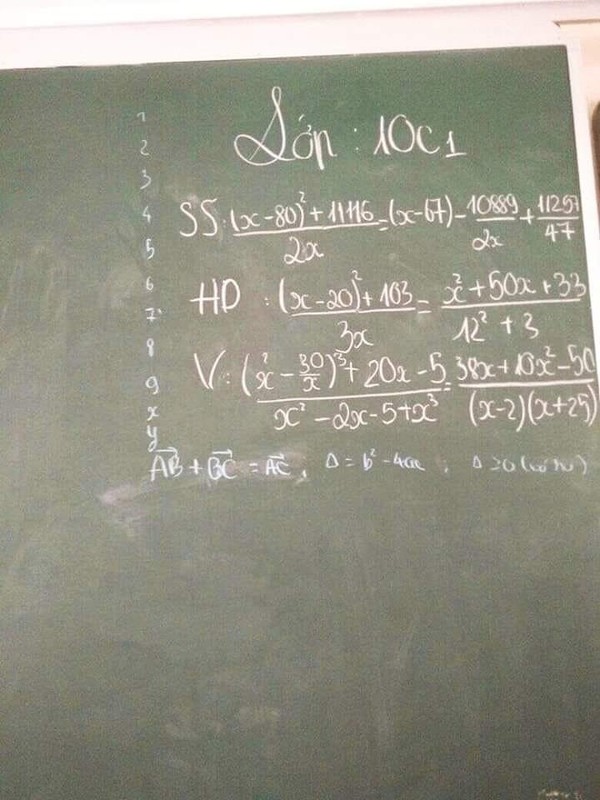 Lớp : 10C1
1
2
3
4
5
6
7
8
9
x
y
SS: ((x-80)²+11116)/2x = (x-67) - 10889/2x + 11257/47
HD : ((x-20)²+103)/3x = (x²+50x+33)/(12²+3)
V: ((x² - 30/x)³ + 20x - 5)/(x² - 2x - 5 + x³) = (38x+10x²-50)/((x-2)(x+25))
AB→ + BC→ = AC→ , Δ = b² - 4ac ; Δ ≥ 0